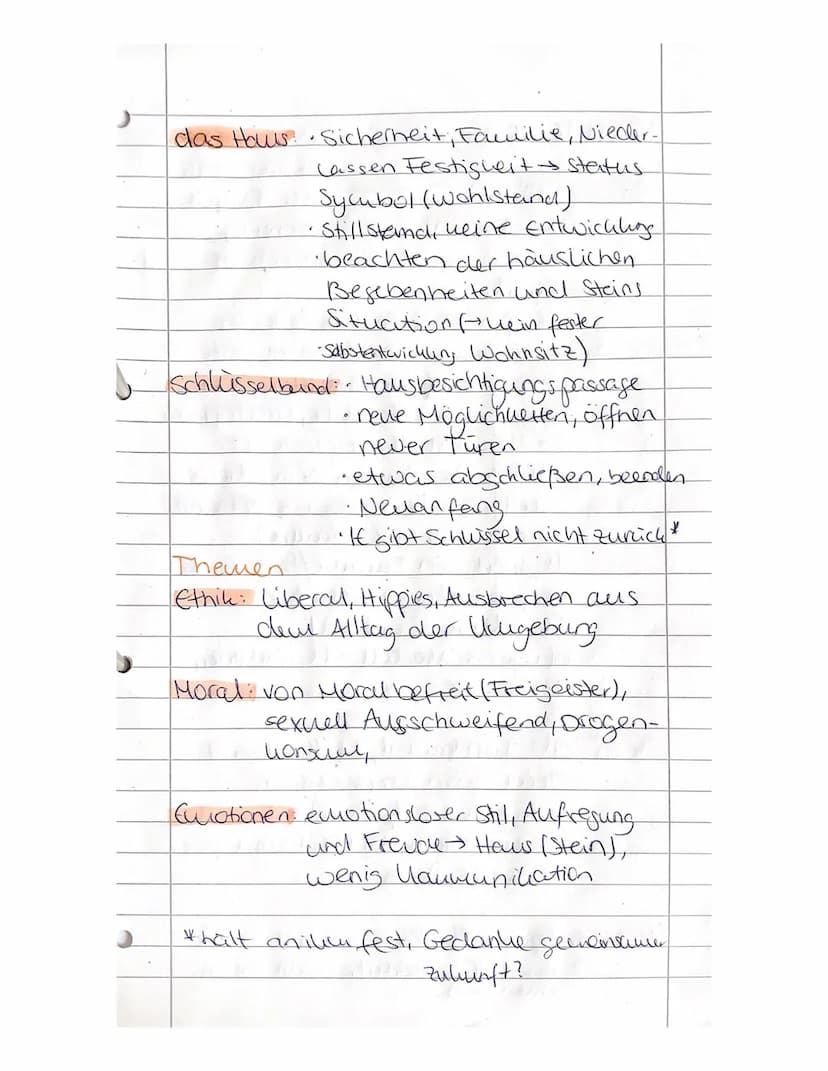 das Haus: · Sicherheit, Familie, Nieder-
lassen Festigkeit → Status
Symbol (Wohlstand)
· Stillstand, keine Entwicklung
· beachten der häuslichen
Begebenheiten und Steins
Situation (→ kein fester
Wohnsitz)
Schlüsselbund: · Hausbesichtigungspassage
· neue Möglichkeiten, öffnen
neuer Türen
· etwas abschließen, beenden
· Neuanfang
· IE gibt Schlüssel nicht zurück*
Themen
Ethik: Liberal, Hippies, Ausbrechen aus
dem Alltag der Umgebung
Moral: von Moral befreit (Freigeister),
sexuell Ausschweifend, Drogen-
konsum,
Emotionen: emotionsloser Stil, Aufregung
und Freude → Haus (Stein),
wenig Kommunikation
*hält an ihm fest, Gedanke gemeinsamer
Zukunft?